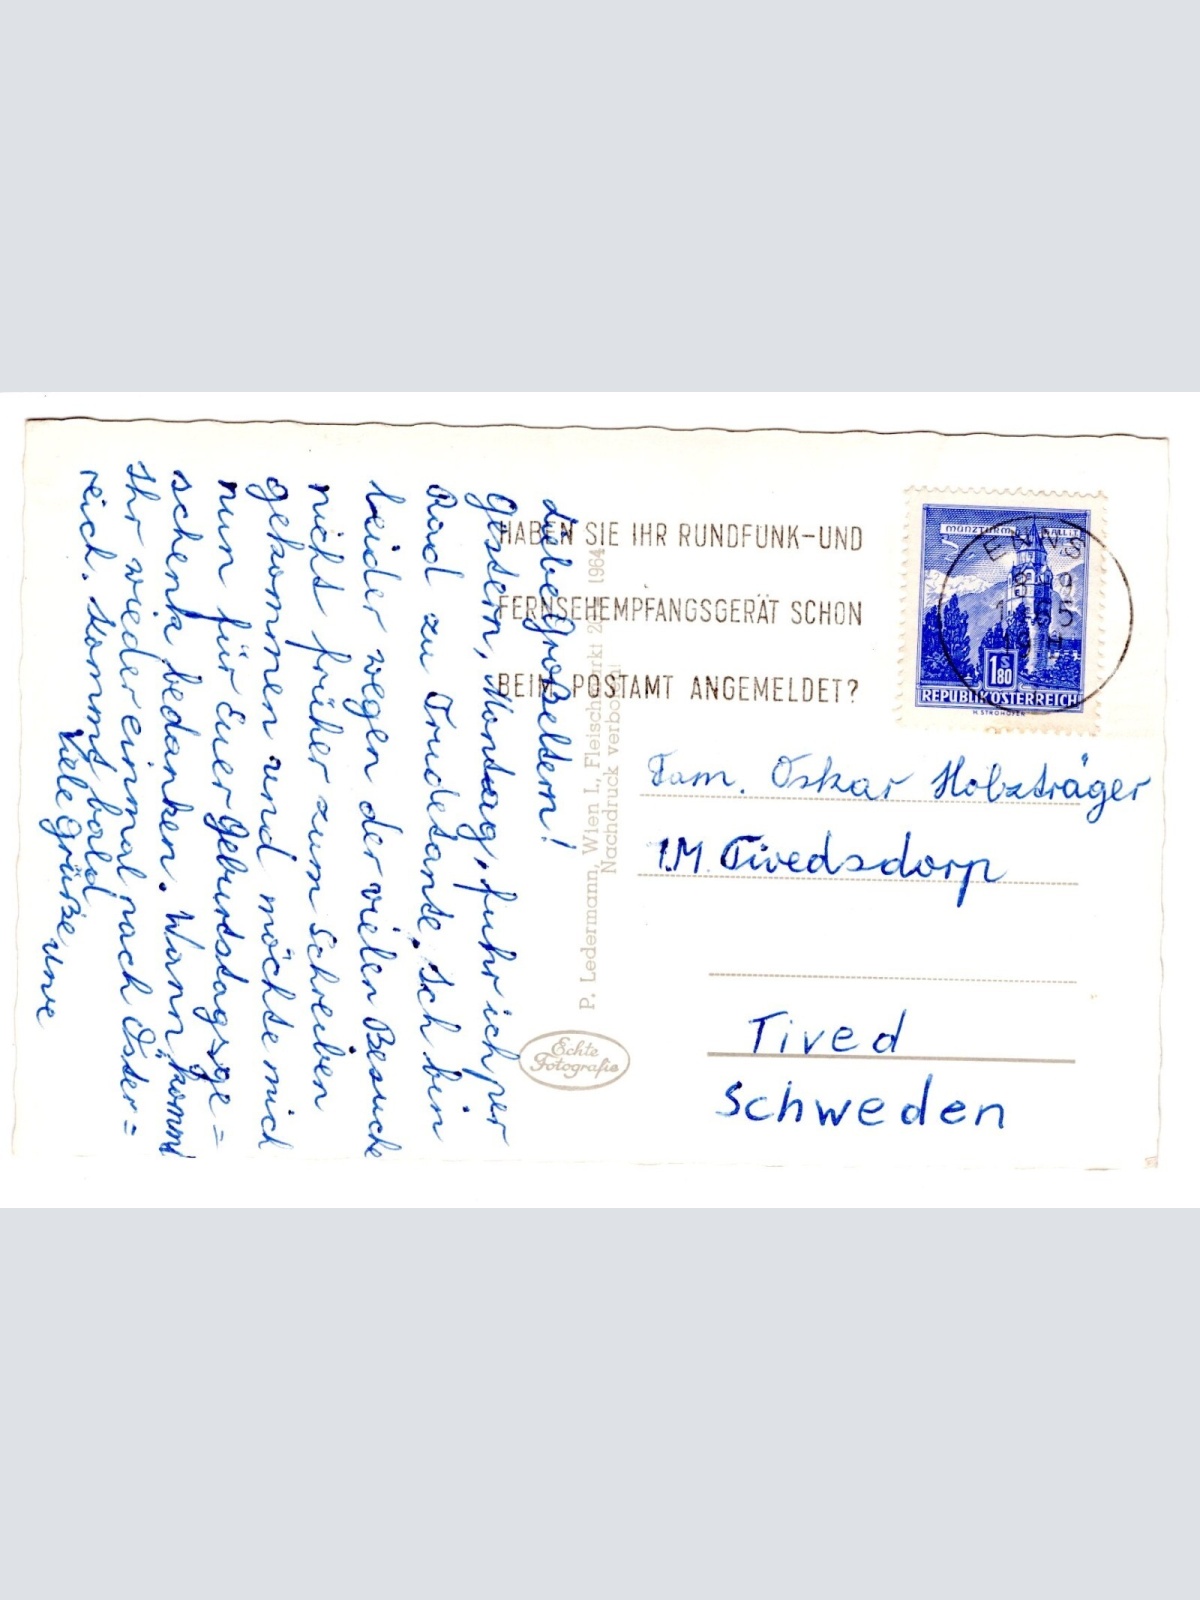 Liebe Großeltern!
Gestern, Montag, fuhr ich per
Rad zu Trudetante. Ich bin
leider wegen der vielen Besuche
nicht früher zum Schreiben
gekommen und möchte mich
nun für Euer Geburtstagsge=
schenk bedanken. Wann kommt
Ihr wieder einmal nach Öster=
reich. Kommt bald
Viele Grüße Uwe
HABEN SIE IHR RUNDFUNK-UND
FERNSEHEMPFANGSGERÄT SCHON
BEIM POSTAMT ANGEMELDET?
MÜNZTURM HALL I.T.
ENNS
65
1S80
REPUBLIK ÖSTERREICH
H. STROHOFER
P. Ledermann, Wien I., Fleischmarkt 1964
Nachdruck verboten!
Echte
Fotografie
Fam. Oskar Holzträger
Tivedsdorp
Tived
Schweden